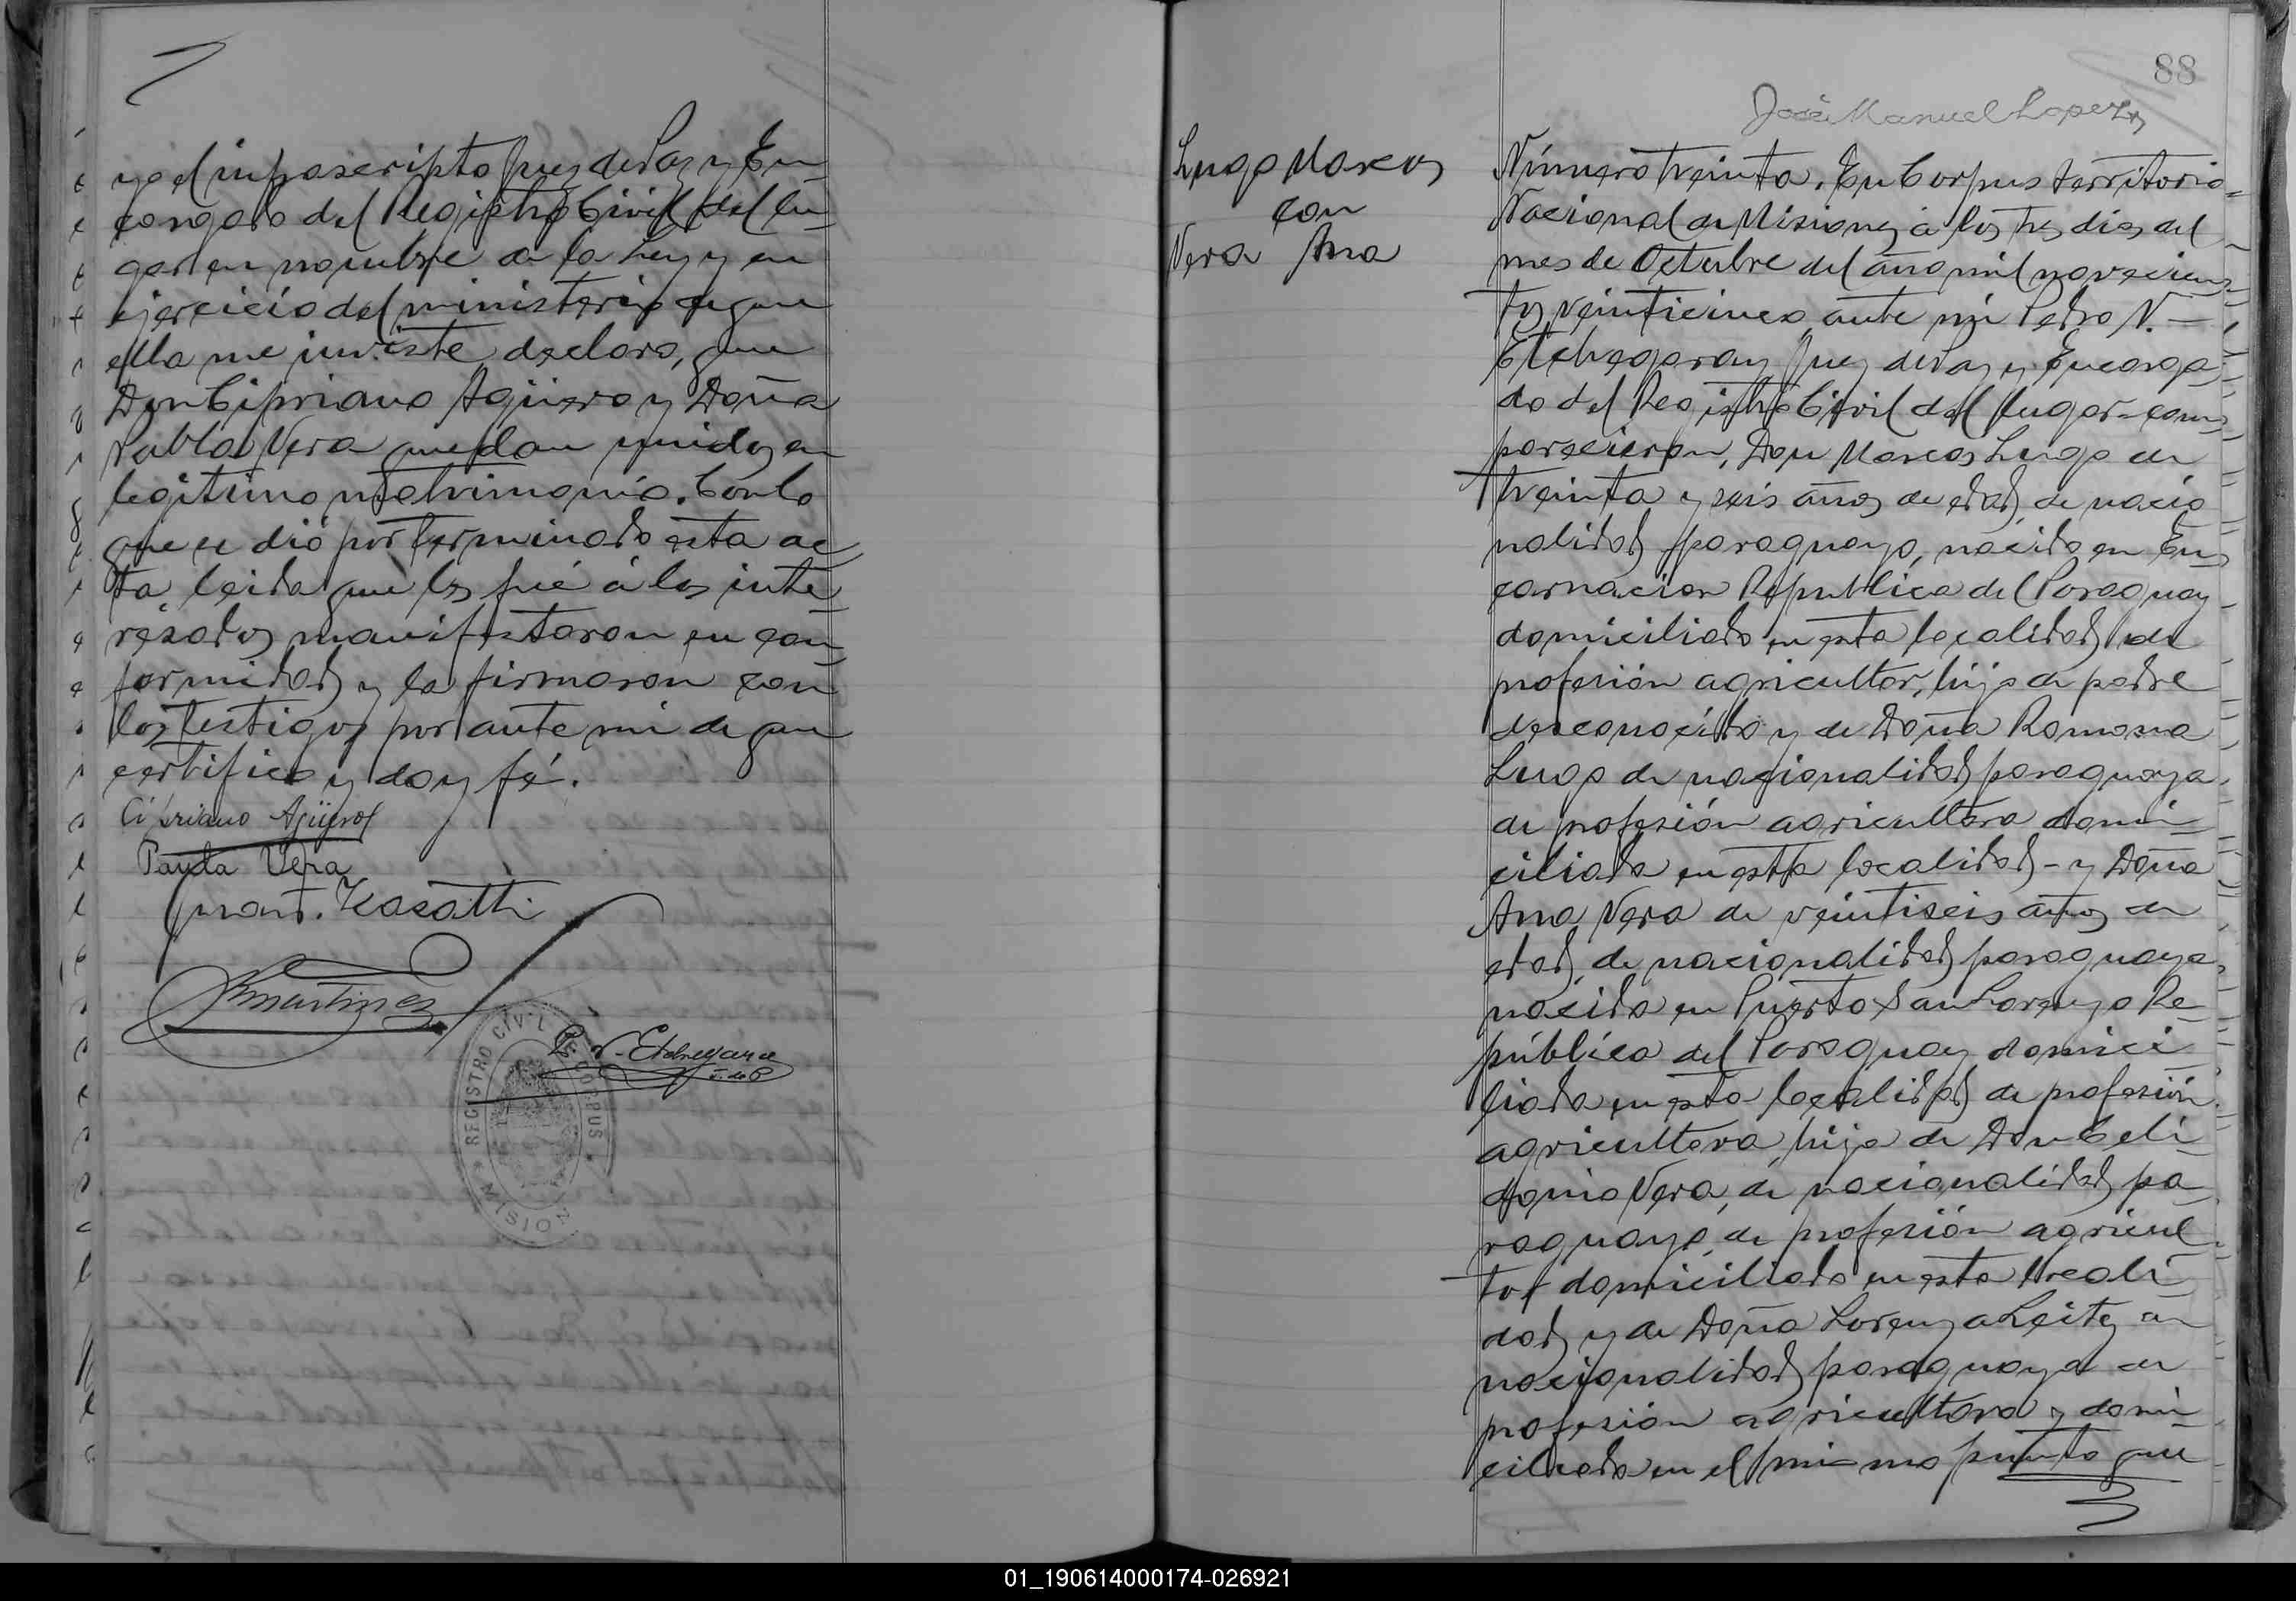 yo el infrascripto Juez de Paz y En-
cargado del Registro Civil del lu-
gar en nombre de la Ley y en
ejercicio del ministerio de que
ella me inviste declaro, que
Don Cipriano Agüero y Doña
Pabla Vera quedan unidos en
legitimo matrimonio. Con lo
que se dió por terminada esta ac-
ta, leida que les fué á los inte-
resados manifestaron su con-
formidad y la firmaron con
los testigos por ante mi de que
certifico y doy fé.
Cipriano Agüero
Paula Vera
Martinez
P. N. Etchegaray
J. de P.
REGISTRO CIVIL DE CORPUS
MISIONES
88
José Manuel Lopez
Lugo Marcos
con
Vera Ana
Número treinta. En Corpus territorio
Nacional de Misiones á los tres dias del
mes de Octubre del año mil novecien-
tos veinticinco ante mi Pedro N. —
Etchegaray Juez de Paz y Encarga-
do del Registro Civil del lugar - com-
parecieron, Don Marcos Lugo de
treinta y seis años de edad, de nacio
nalidad paraguaya, nacido en En-
carnacion Republica del Paraguay
domiciliado en esta localidad de
profesión agricultor, hijo de padre
desconocido y de Doña Ramona
Lugo de nacionalidad paraguaya,
de profesión agricultora domi-
ciliada en esta localidad - y Doña
Ana Vera de veintiseis años de
edad, de nacionalidad paraguaya,
nacida en Puerto San Lorenzo Re-
pública del Paraguay domici-
liada en esta localidad de profesión
agricultora, hija de Don Celi-
donio Vera, de nacionalidad pa-
raguaya, de profesión agricul-
tor domiciliado en esta locali-
dad y de Doña Lorenza Leites de
nacionalidad paraguaya de
profesión agricultora y domi-
ciliada en el mismo punto que
01_190614000174-026921